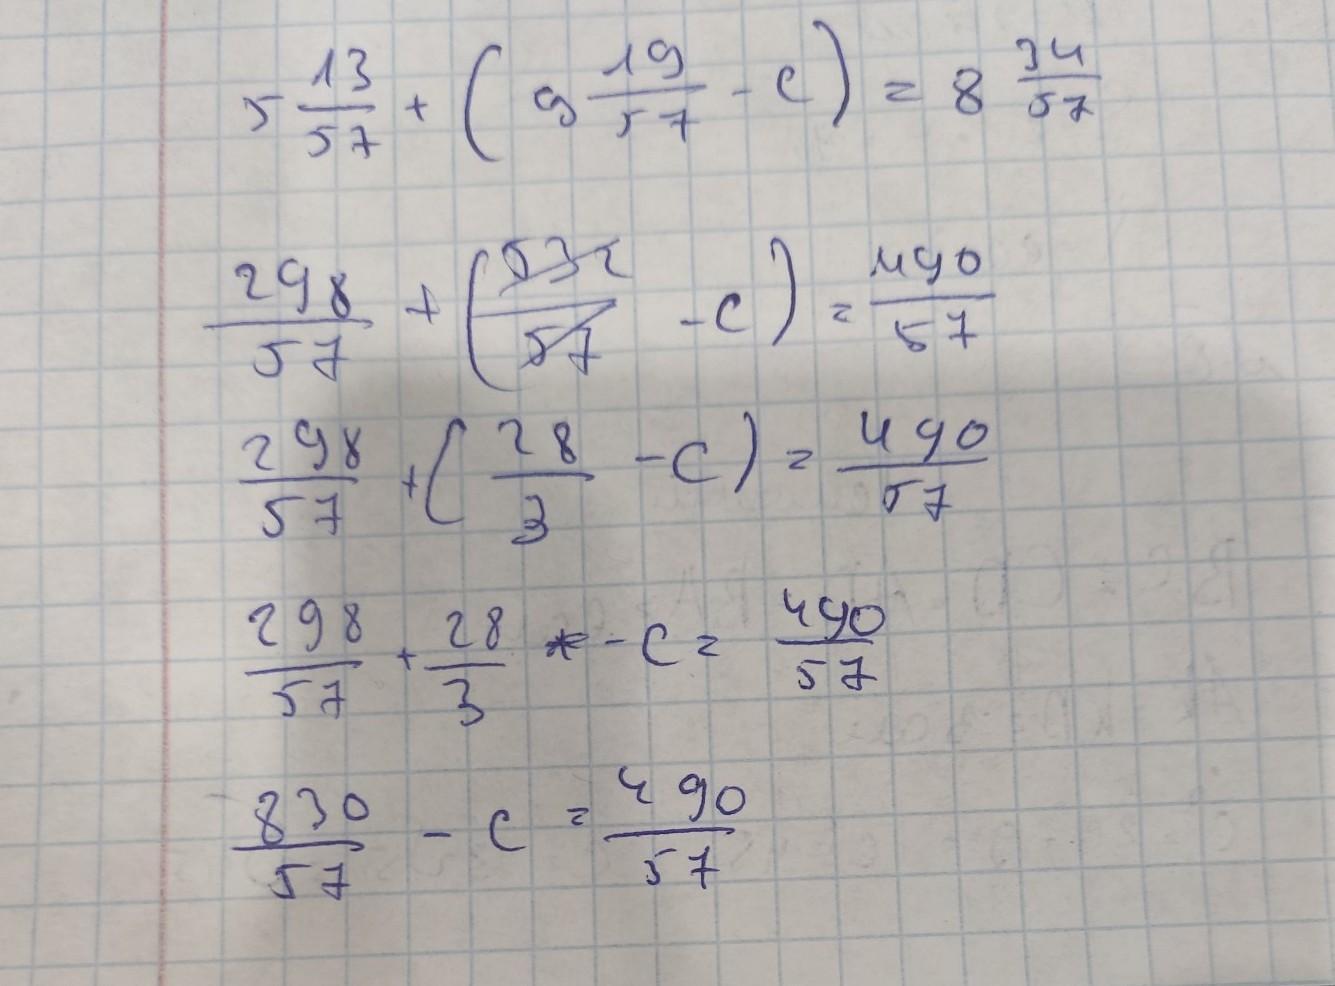 5 13/57 + ( 9 19/57 - c ) = 8 34/57
298/57 + ( 532/57 - c ) = 490/57
298/57 + ( 28/3 - c ) = 490/57
298/57 + 28/3 - c = 490/57
830/57 - c = 490/57